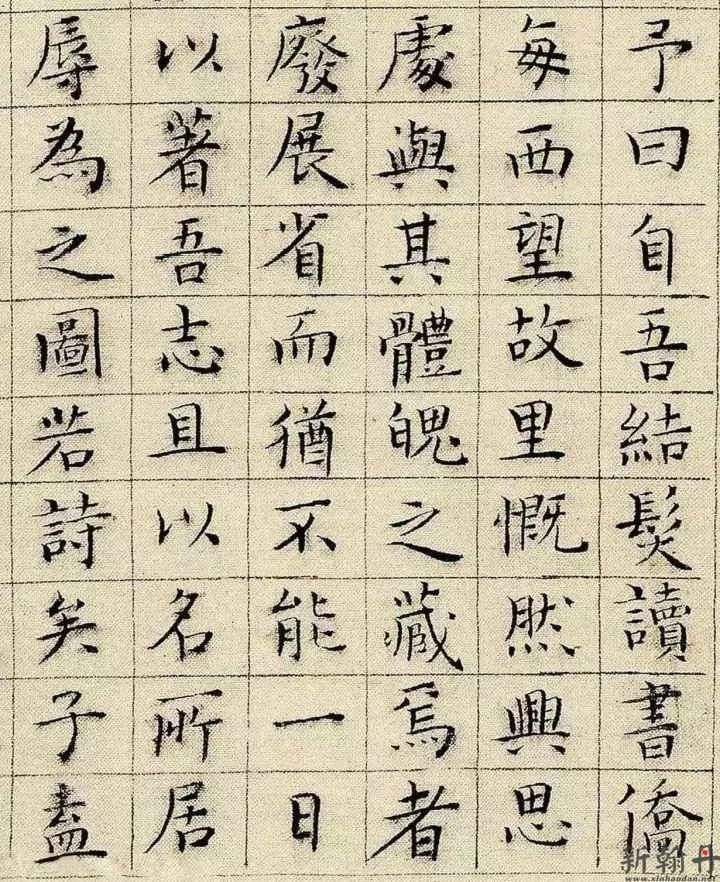 予曰自吾結髮讀書僑
每西望故里慨然興思
處與其體魄之藏焉者
廢展省而猶不能一日
以著吾志且以名所居
辱為之圖若詩矣子盍
新翰丹
www.xinhandan.net